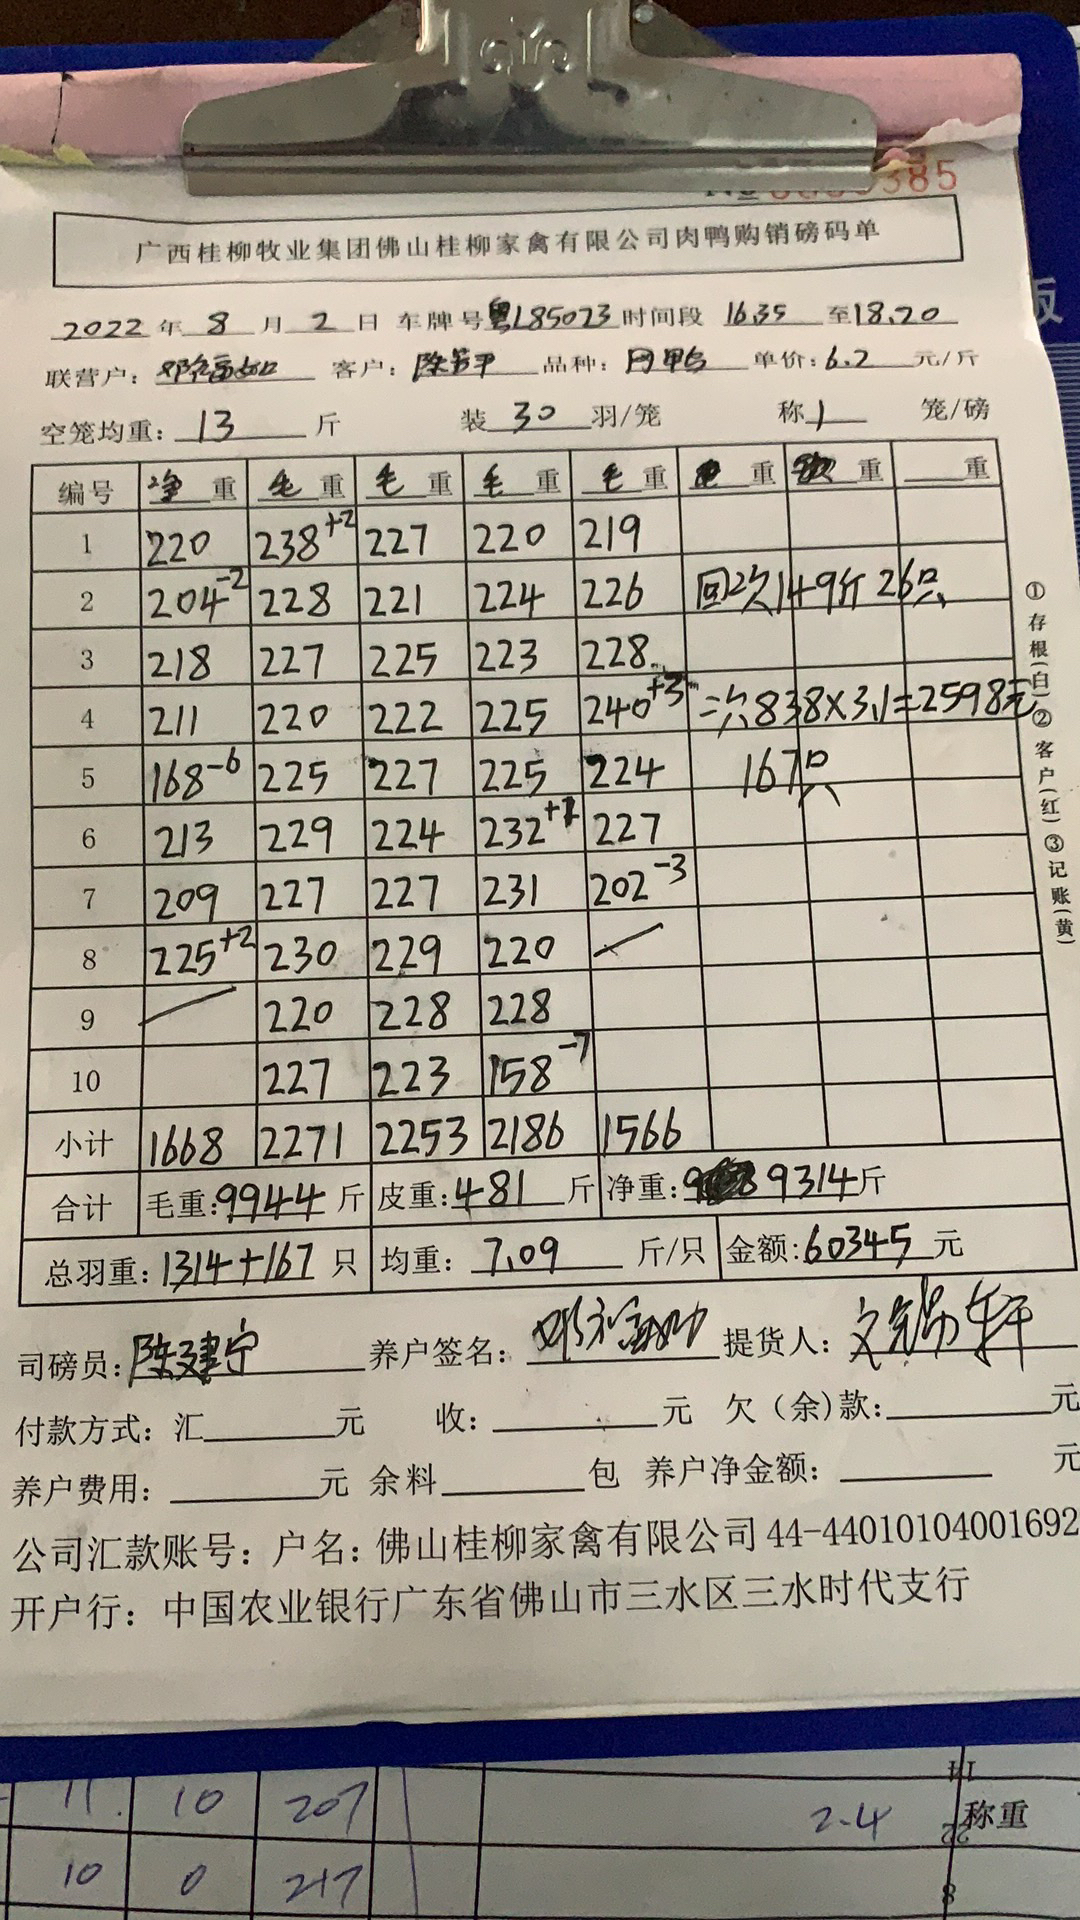 385
广西桂柳牧业集团佛山桂柳家禽有限公司肉鸭购销磅码单
2022年 8 月 2 日 车牌号粤L85023 时间段 16.35 至18.20
联营户: 客户: 品种: 单价:6.2 元/斤
空笼均重: 13 斤 装 30 羽/笼 称 1 笼/磅
编号 净重 毛重 毛重 毛重 毛重 重 重 重
1 220 238+2 227 220 219
2 204-2 228 221 224 226 回次149斤 26只
3 218 227 225 223 228
4 211 220 222 225 240+3 二次838×3.1=2598元
5 168-6 225 227 225 224 167只
6 213 229 224 232 227
7 209 227 227 231 202-3
8 225+2 230 229 220
9 220 228 228
10 227 223 158-7
小计 1668 2271 2253 2186 1566
合计 毛重:9944 斤 皮重:481 斤 净重: 9314斤
总羽重:1314+167 只 均重: 7.09 斤/只 金额:60345 元
司磅员:陈建宁 养户签名: 提货人:
付款方式: 汇 元 收: 元 欠(余)款: 元
养户费用: 元 余料 包 养户净金额: 元
公司汇款账号: 户名: 佛山桂柳家禽有限公司 44-44010104001692
开户行: 中国农业银行广东省佛山市三水区三水时代支行
①存根(白)②客户(红)③记账(黄)
11. 10 207 2.4 称重
10 0 217